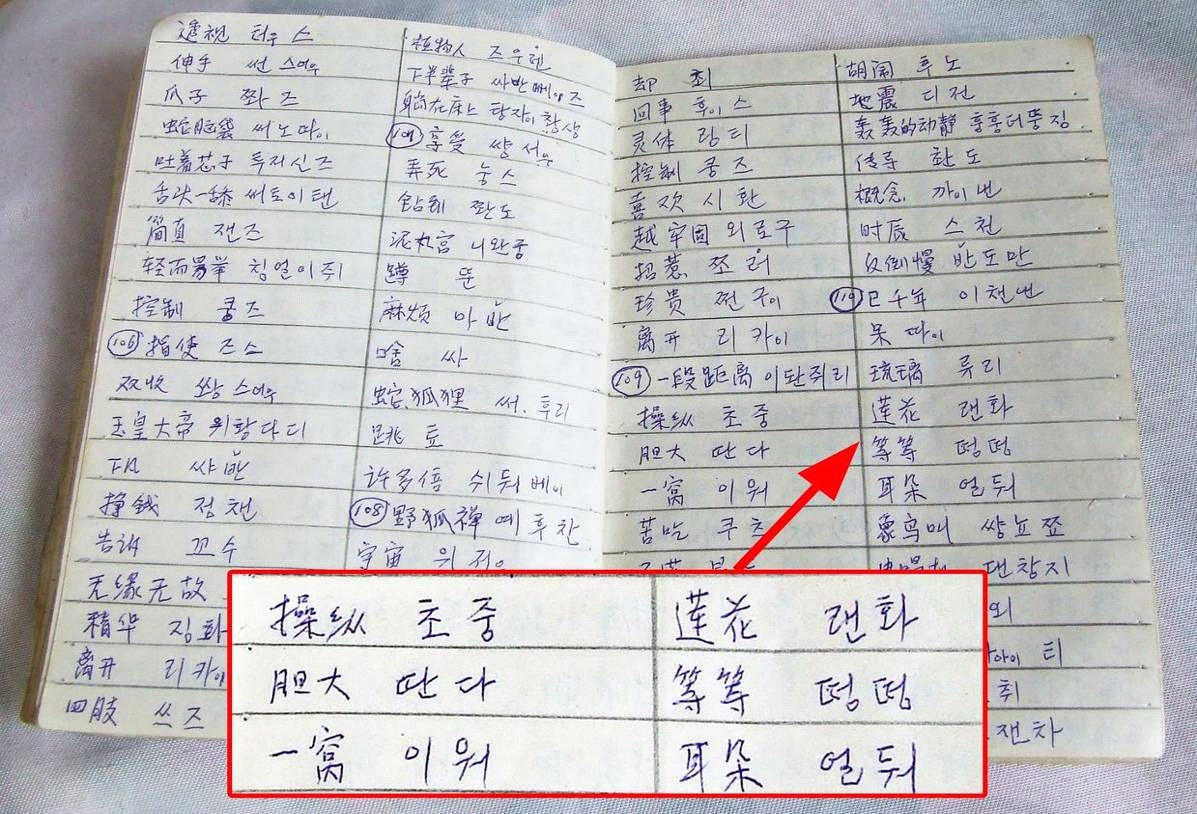 透视 터우 스
伸手 썬 스여우
爪子 쫘 즈
蛇脑袋 써 노 따이
吐着芯子 투저신즈
舌尖一舔 써 토이 탠
简直 잰즈
轻而易举 칭얼이쥐
控制 쿵즈
(106) 指使 즈스
双收 쐉 스여우
玉皇大帝 위황다디
下凡 쌰반
挣钱 정챈
告诉 꼬수
无缘无故
精华 징화
离开 리카이
四肢 쓰즈
植物人 즈우렌
下半辈子 싸반뻬이즈
躺在床上 탕자이촹상
(107) 享受 쌍서우
弄死 눙스
钻到 쫜도
泥丸宫 니완궁
蹲 뚠
麻烦 마반
啥 싸
蛇.狐狸 써.후리
跳 툐
许多倍 쉬둬베이
(108) 野狐禅 예후찬
宇宙 위저우
却 최
回事 후이스
灵体 링티
控制 쿵즈
喜欢 시환
越牢固 외로구
招惹 쪼러
珍贵 쩐구이
离开 리카이
(109) 一段距离 이단쥐리
操纵 초중
胆大 딴다
一窝 이워
苦吃 쿠츠
胡闹 후노
地震 디전
轰轰的动静 훙훙더뚱징
传导 촨도
概念 까이낸
时辰 스천
反倒慢 반도만
(110) 巳千年 이챈낸
呆 따이
琉璃 류리
莲花 랜화
等等 떵떵
耳朵 얼둬
象鸟叫 쌍뇨쬬
댄창지
외
이 티
취
잰차
操纵 초중
胆大 딴다
一窝 이워
莲花 랜화
等等 떵떵
耳朵 얼둬